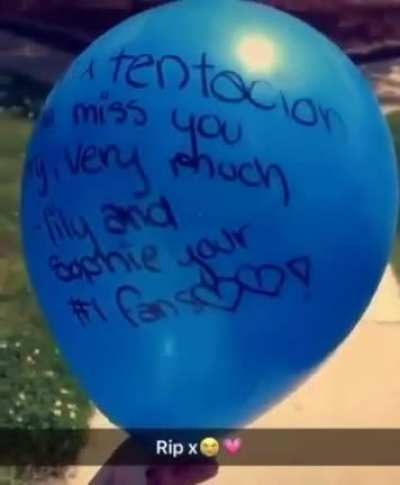 x tentacion
miss you
very, very much
- lily and
Sophie your
#1 fans ♡♡♡
Rip x😂💗